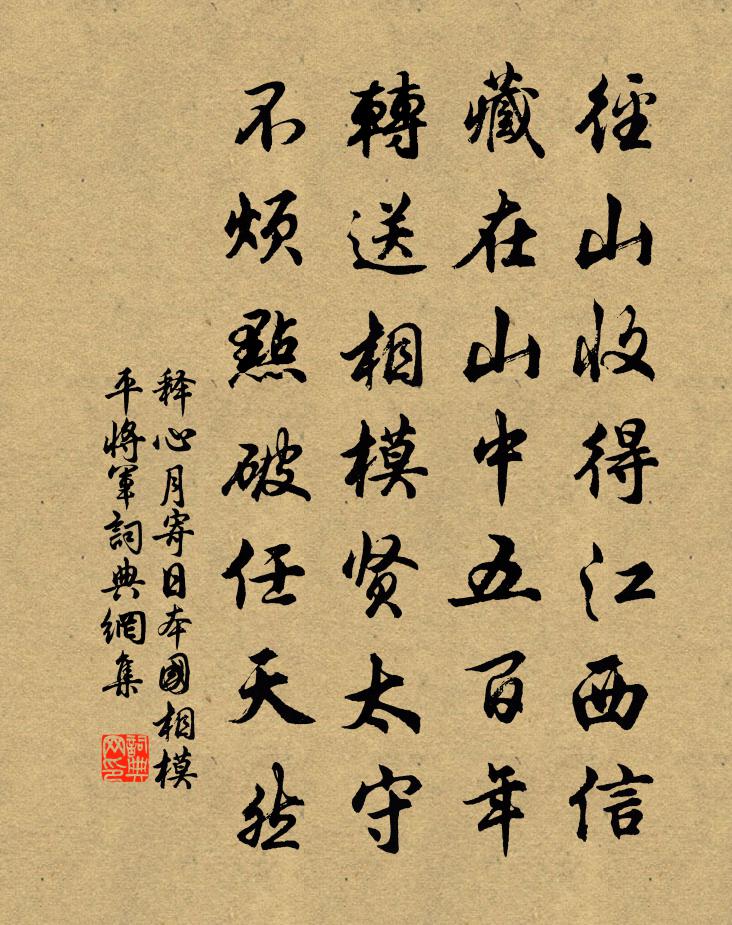 徑山收得江西信
藏在山中五百年
轉送相模贤太守
不煩點破任天然
释心月寄日本國相模
平將軍詞典網集
詞典
网印